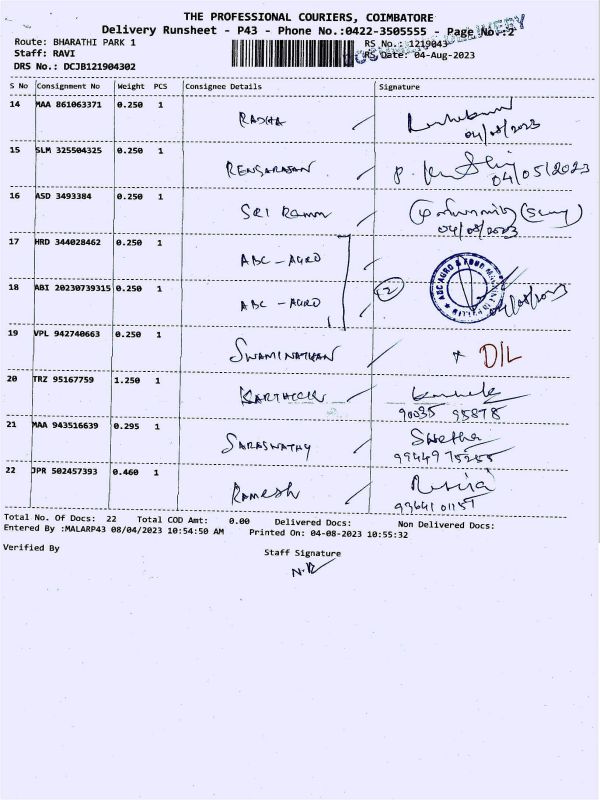 THE PROFESSIONAL COURIERS, COIMBATORE
Delivery Runsheet - P43 - Phone No.:0422-3505555 - Page No.:2
Route: BHARATHI PARK 1
RS No.: 1219043
Staff: RAVI
RS Date: 04-Aug-2023
DRS No.: DCJB121904302
S No Consignment No Weight PCS Consignee Details Signature
14 MAA 861063371 0.250 1 RADHA
04/08/2023
15 SLM 325504325 0.250 1 RENGARAJAN
04/05/2023
16 ASD 3493384 0.250 1 SRI RAMM
04/08/2023
17 HRD 344028462 0.250 1 ABC - AGRO
18 ABI 20230739315 0.250 1 ABC - AGRO 2
04/08/2023
19 VPL 942740663 0.250 1 SWAMINATHAN D/L
20 TRZ 95167759 1.250 1 KARTHICK
90035 95878
21 MAA 943516639 0.295 1 SARASWATHY Swetha
99449 75255
22 JPR 502457393 0.460 1 RAMESH
93641 01157
Total No. Of Docs: 22 Total COD Amt: 0.00 Delivered Docs: Non Delivered Docs:
Entered By :MALARP43 08/04/2023 10:54:50 AM Printed On: 04-08-2023 10:55:32
Verified By Staff Signature